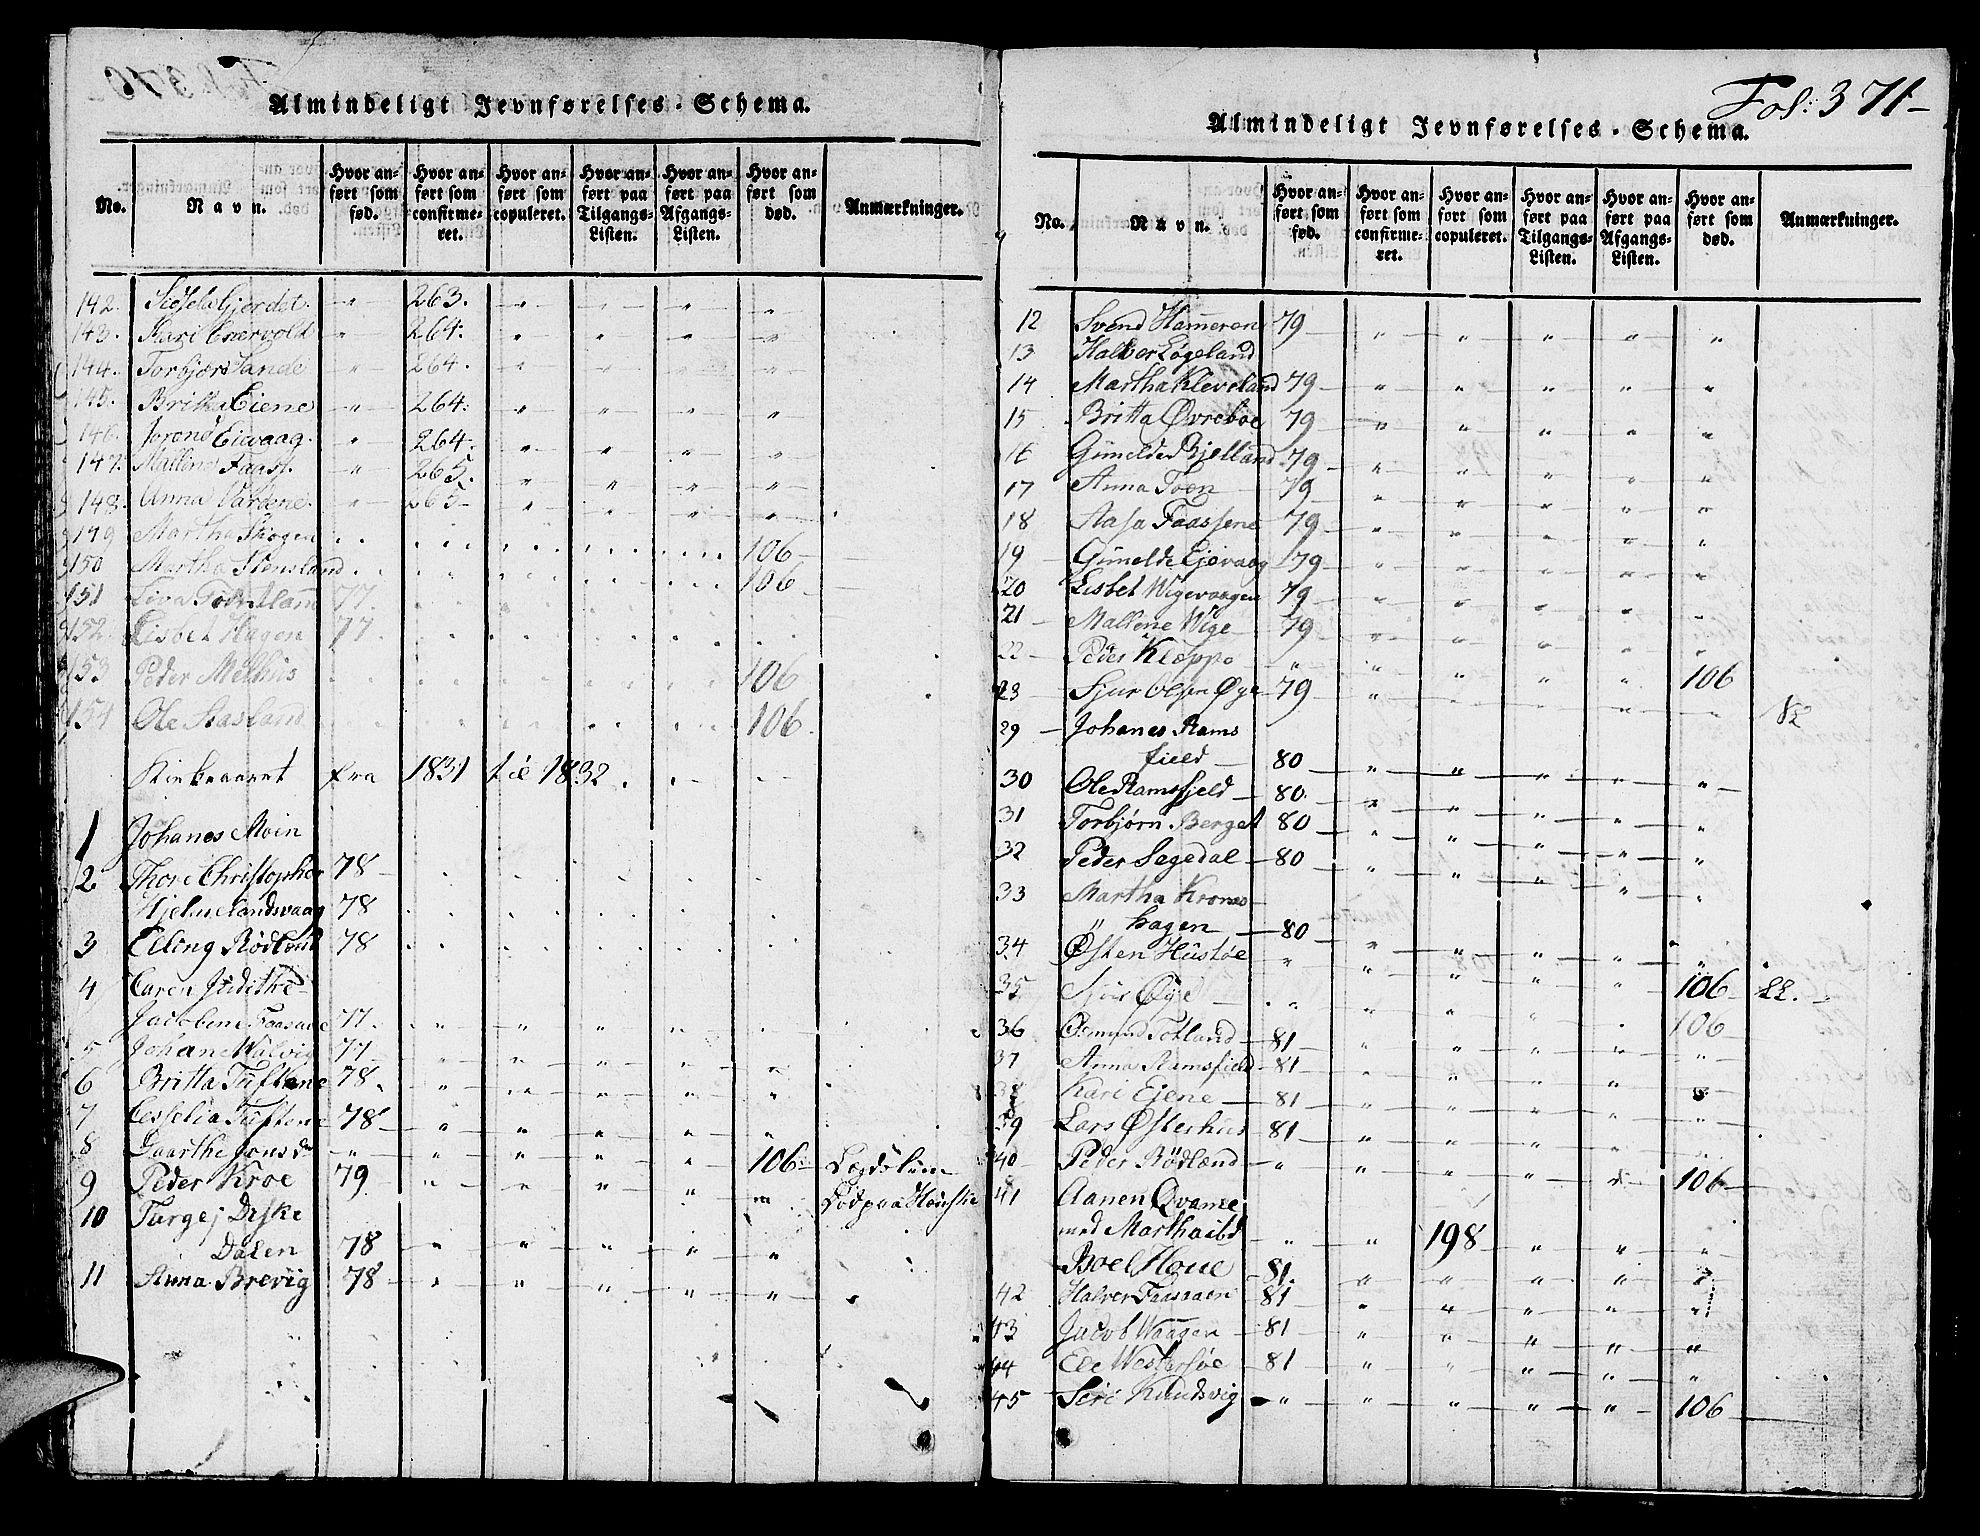 Almindeligt Jevnførelses-Schema.
No. Navn. Hvor anført som fød. Hvor anført som confirmeret. Hvor anført som copuleret. Hvor anført paa Tilgangs-Listen. Hvor anført paa Afgangs-Listen. Hvor anført som død. Anmærkninger.
142. Gjerdet. " 263. " " " "
143. Kari " 264. " " " "
144. Torbjør Sande " 264. " " " "
145. Britha Eiene " 264. " " " "
146. Eievaag. " 264. " " " "
147. Mallene Faass. " 265. " " " "
148. Anna Vardene " 265 " " " "
149 Martha Skogen 106
150 Martha Stensland 106
151 77.
152. Lisbet Hagen 77
153 Peder Melhus 106
154 Ole Aasland 106
Kirkeaaret fra 1831 til 1832.
1 Johanes Moin
2 Thore Christopher 78
Hjelm Landsvaag 78
3 Elling Rødland 78
4 Caren Judithe
Jacobine Faasaae 77.
5 Johan Malvig 77
6 Britta Tuftene 78.
7 Cesselia Tuftene 78
8 Gaarthe Jons dr " " " " " 106 Lægdslem
9 Peder Kroe 79 " " " " " Død paa Høuske
10 Targej Deske
Dalen 78 " " " " "
11 Anna Brevig 78 " " " " "
Fol: 371
Almindeligt Jevnførelses-Schema.
No. Navn. Hvor anført som fød. Hvor anført som confirmeret. Hvor anført som copuleret. Hvor anført paa Tilgangs-Listen. Hvor anført paa Afgangs-Listen. Hvor anført som død. Anmærkninger.
12 Svend Hameren 79 " " " " "
13 Halver Løgeland
14 Martha Kleveland 79 " " " " "
15 Britta Øvreboe 79 " " " " "
16 Gunelde Bjelland 79 " " " " "
17 Anna Toen 79 " " " " "
18 Aasa Faassene 79 " " " " "
19 Gunelde Ejevaag 79 " " " " "
20 Lisbet Wigevaagen 79 " " " " "
21 Mallene Wige 79 " " " " "
22 Peder Kleppo " " " " " 106
23 Sjur Olsen Øye 79 " " " " "
29 Johanes Rams
field 80 " " " " "
30 Ole Ramsfjeld 80. " " " " "
31 Torbjørn Berget 80 " " " " "
32 Peder Segedal 80 " " " " "
33 Martha Krones
" hagen 80 " " " " "
34 Østen Hustøe " " " " " 106
35 Sjur Øye " " " " " 106
36 Osmund Totland 81 " " " " "
37 Anna Ramsfield 81 " " " " "
38 Kari Ejene 81 " " " " "
39 Lars Østerhus 81 " " " " "
40 Peder Rødland " " " " " 106
41 Aanen Qvame
med Martha ibd " " 198 " " "
Boel Houe 81. " " " " "
42 Halver Faasaaen 81 " " " " "
43 Jacob Waagen 81 " " " " "
44 Ele Westersøe 81 " " " " "
45 Siri Kundsvig " " " " " 106